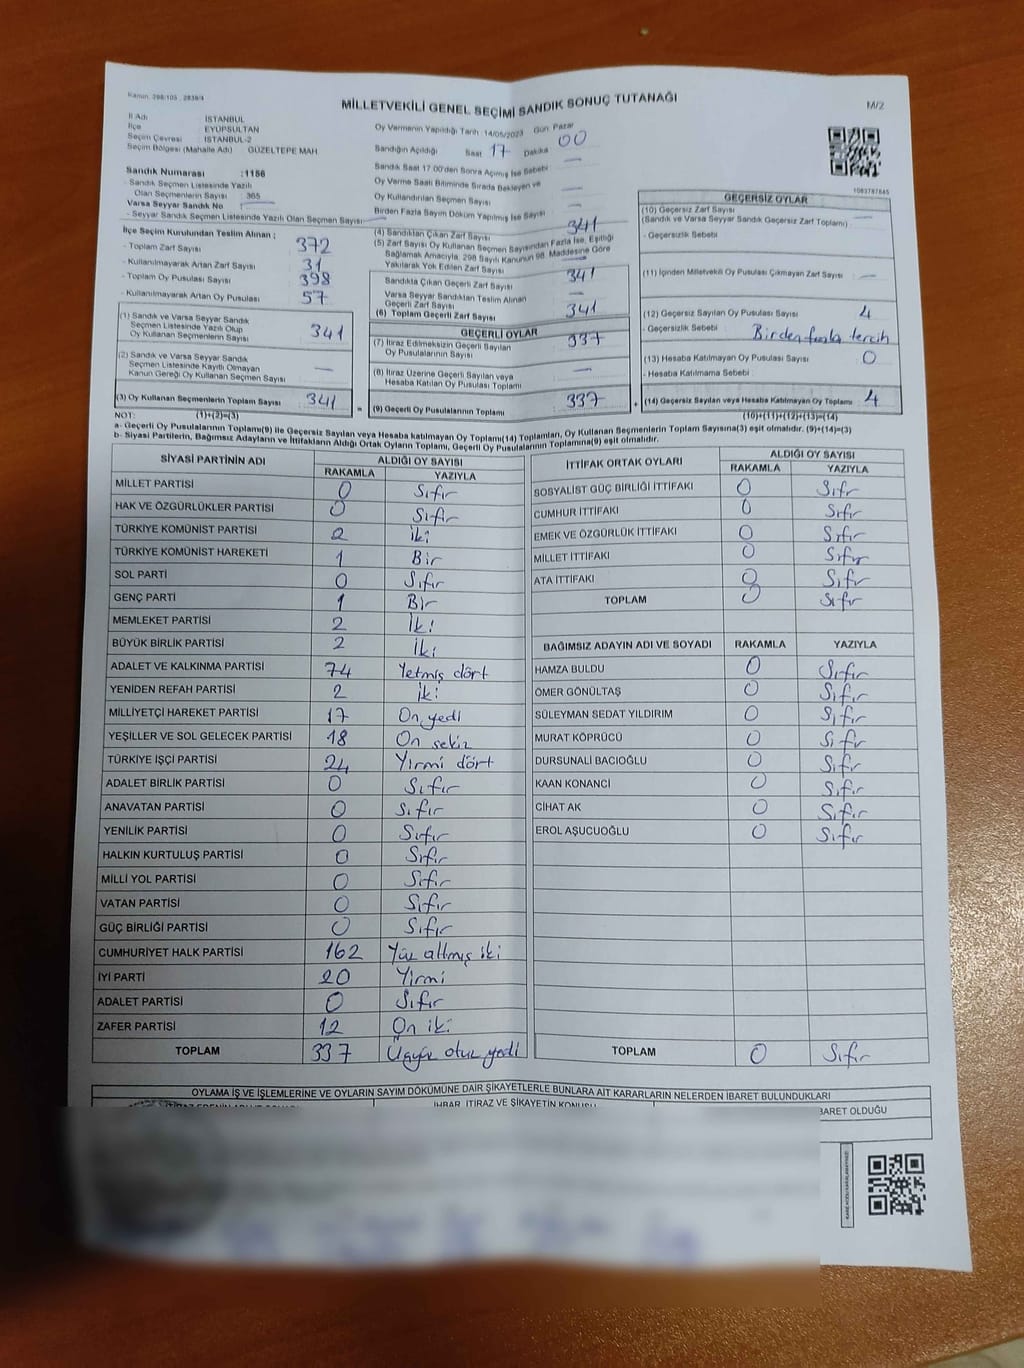 Kanun: 298/105 , 2839/4
MİLLETVEKİLİ GENEL SEÇİMİ SANDIK SONUÇ TUTANAĞI
M/2
İl Adı İSTANBUL
İlçe EYÜPSULTAN
Seçim Çevresi İSTANBUL-2
Seçim Bölgesi (Mahalle Adı) GÜZELTEPE MAH.
Sandık Numarası : 1156
- Sandık Seçmen Listesinde Yazılı
Olan Seçmenlerin Sayısı : 365
Varsa Seyyar Sandık No : —
- Seyyar Sandık Seçmen Listesinde Yazılı Olan Seçmen Sayısı: —
Oy Vermenin Yapıldığı Tarih 14/05/2023 Gün Pazar
Sandığın Açıldığı Saat 17 Dakika 00
Sandık Saat 17:00'den Sonra Açılmış İse Sebebi —
Oy Verme Saati Bitiminde Sırada Bekleyen ve
Oy Kullandırılan Seçmen Sayısı —
Birden Fazla Sayım Döküm Yapılmış İse Sayısı —
1083787845
İlçe Seçim Kurulundan Teslim Alınan ;
- Toplam Zarf Sayısı : 372
- Kullanılmayarak Artan Zarf Sayısı : 31
- Toplam Oy Pusulası Sayısı : 398
- Kullanılmayarak Artan Oy Pusulası : 57
(1) Sandık ve Varsa Seyyar Sandık
Seçmen Listesinde Yazılı Olup
Oy Kullanan Seçmenlerin Sayısı 341
(2) Sandık ve Varsa Seyyar Sandık
Seçmen Listesinde Kayıtlı Olmayan
Kanun Gereği Oy Kullanan Seçmen Sayısı —
(3) Oy Kullanan Seçmenlerin Toplam Sayısı 341
(4) Sandıktan Çıkan Zarf Sayısı 341
(5) Zarf Sayısı Oy Kullanan Seçmen Sayısından Fazla İse, Eşitliği
Sağlamak Amacıyla, 298 Sayılı Kanunun 98. Maddesine Göre
Yakılarak Yok Edilen Zarf Sayısı —
Sandıkta Çıkan Geçerli Zarf Sayısı 341
Varsa Seyyar Sandıktan Teslim Alınan
Geçerli Zarf Sayısı —
(6) Toplam Geçerli Zarf Sayısı 341
GEÇERLİ OYLAR
(7) İtiraz Edilmeksizin Geçerli Sayılan
Oy Pusulalarının Sayısı 337
(8) İtiraz Üzerine Geçerli Sayılan veya
Hesaba Katılan Oy Pusulası Toplamı —
= (9) Geçerli Oy Pusulalarının Toplamı 337
GEÇERSİZ OYLAR
(10) Geçersiz Zarf Sayısı
(Sandık ve Varsa Seyyar Sandık Geçersiz Zarf Toplamı) —
- Geçersizlik Sebebi :
(11) İçinden Milletvekili Oy Pusulası Çıkmayan Zarf Sayısı : —
(12) Geçersiz Sayılan Oy Pusulası Sayısı 4
- Geçersizlik Sebebi : Birden fazla tercih
(13) Hesaba Katılmayan Oy Pusulası Sayısı 0
- Hesaba Katılmama Sebebi :
+ (14) Geçersiz Sayılan veya Hesaba Katılmayan Oy Toplamı 4
NOT: (1)+(2)=(3) (10)+(11)+(12)+(13)=(14)
a- Geçerli Oy Pusulalarının Toplamı(9) ile Geçersiz Sayılan veya Hesaba katılmayan Oy Toplamı(14) Toplamları, Oy Kullanan Seçmenlerin Toplam Sayısına(3) eşit olmalıdır. (9)+(14)=(3)
b- Siyasi Partilerin, Bağımsız Adayların ve İttifakların Aldığı Ortak Oyların Toplamı, Geçerli Oy Pusulalarının Toplamına(9) eşit olmalıdır.
SİYASİ PARTİNİN ADI ALDIĞI OY SAYISI
RAKAMLA YAZIYLA
MİLLET PARTİSİ 0 Sıfır
HAK VE ÖZGÜRLÜKLER PARTİSİ 0 Sıfır
TÜRKİYE KOMÜNİST PARTİSİ 2 İki
TÜRKİYE KOMÜNİST HAREKETİ 1 Bir
SOL PARTİ 0 Sıfır
GENÇ PARTİ 1 Bir
MEMLEKET PARTİSİ 2 İki
BÜYÜK BİRLİK PARTİSİ 2 İki
ADALET VE KALKINMA PARTİSİ 74 Yetmiş dört
YENİDEN REFAH PARTİSİ 2 İki
MİLLİYETÇİ HAREKET PARTİSİ 17 On yedi
YEŞİLLER VE SOL GELECEK PARTİSİ 18 On sekiz
TÜRKİYE İŞÇİ PARTİSİ 24 Yirmi dört
ADALET BİRLİK PARTİSİ 0 Sıfır
ANAVATAN PARTİSİ 0 Sıfır
YENİLİK PARTİSİ 0 Sıfır
HALKIN KURTULUŞ PARTİSİ 0 Sıfır
MİLLİ YOL PARTİSİ 0 Sıfır
VATAN PARTİSİ 0 Sıfır
GÜÇ BİRLİĞİ PARTİSİ 0 Sıfır
CUMHURİYET HALK PARTİSİ 162 Yüz altmış iki
İYİ PARTİ 20 Yirmi
ADALET PARTİSİ 0 Sıfır
ZAFER PARTİSİ 12 On iki
TOPLAM 337 Üçyüz otuz yedi
İTTİFAK ORTAK OYLARI ALDIĞI OY SAYISI
RAKAMLA YAZIYLA
SOSYALİST GÜÇ BİRLİĞİ İTTİFAKI 0 Sıfır
CUMHUR İTTİFAKI 0 Sıfır
EMEK VE ÖZGÜRLÜK İTTİFAKI 0 Sıfır
MİLLET İTTİFAKI 0 Sıfır
ATA İTTİFAKI 0 Sıfır
TOPLAM 0 Sıfır
BAĞIMSIZ ADAYIN ADI VE SOYADI RAKAMLA YAZIYLA
HAMZA BULDU 0 Sıfır
ÖMER GÖNÜLTAŞ 0 Sıfır
SÜLEYMAN SEDAT YILDIRIM 0 Sıfır
MURAT KÖPRÜCÜ 0 Sıfır
DURSUNALİ BACIOĞLU 0 Sıfır
KAAN KONANCI 0 Sıfır
CİHAT AK 0 Sıfır
EROL AŞUCUOĞLU 0 Sıfır
TOPLAM 0 Sıfır
OYLAMA İŞ VE İŞLEMLERİNE VE OYLARIN SAYIM DÖKÜMÜNE DAİR ŞİKAYETLERLE BUNLARA AİT KARARLARIN NELERDEN İBARET BULUNDUKLARI
İHBAR, İTİRAZ VE ŞİKAYETİN KONUSU BARET OLDUĞU